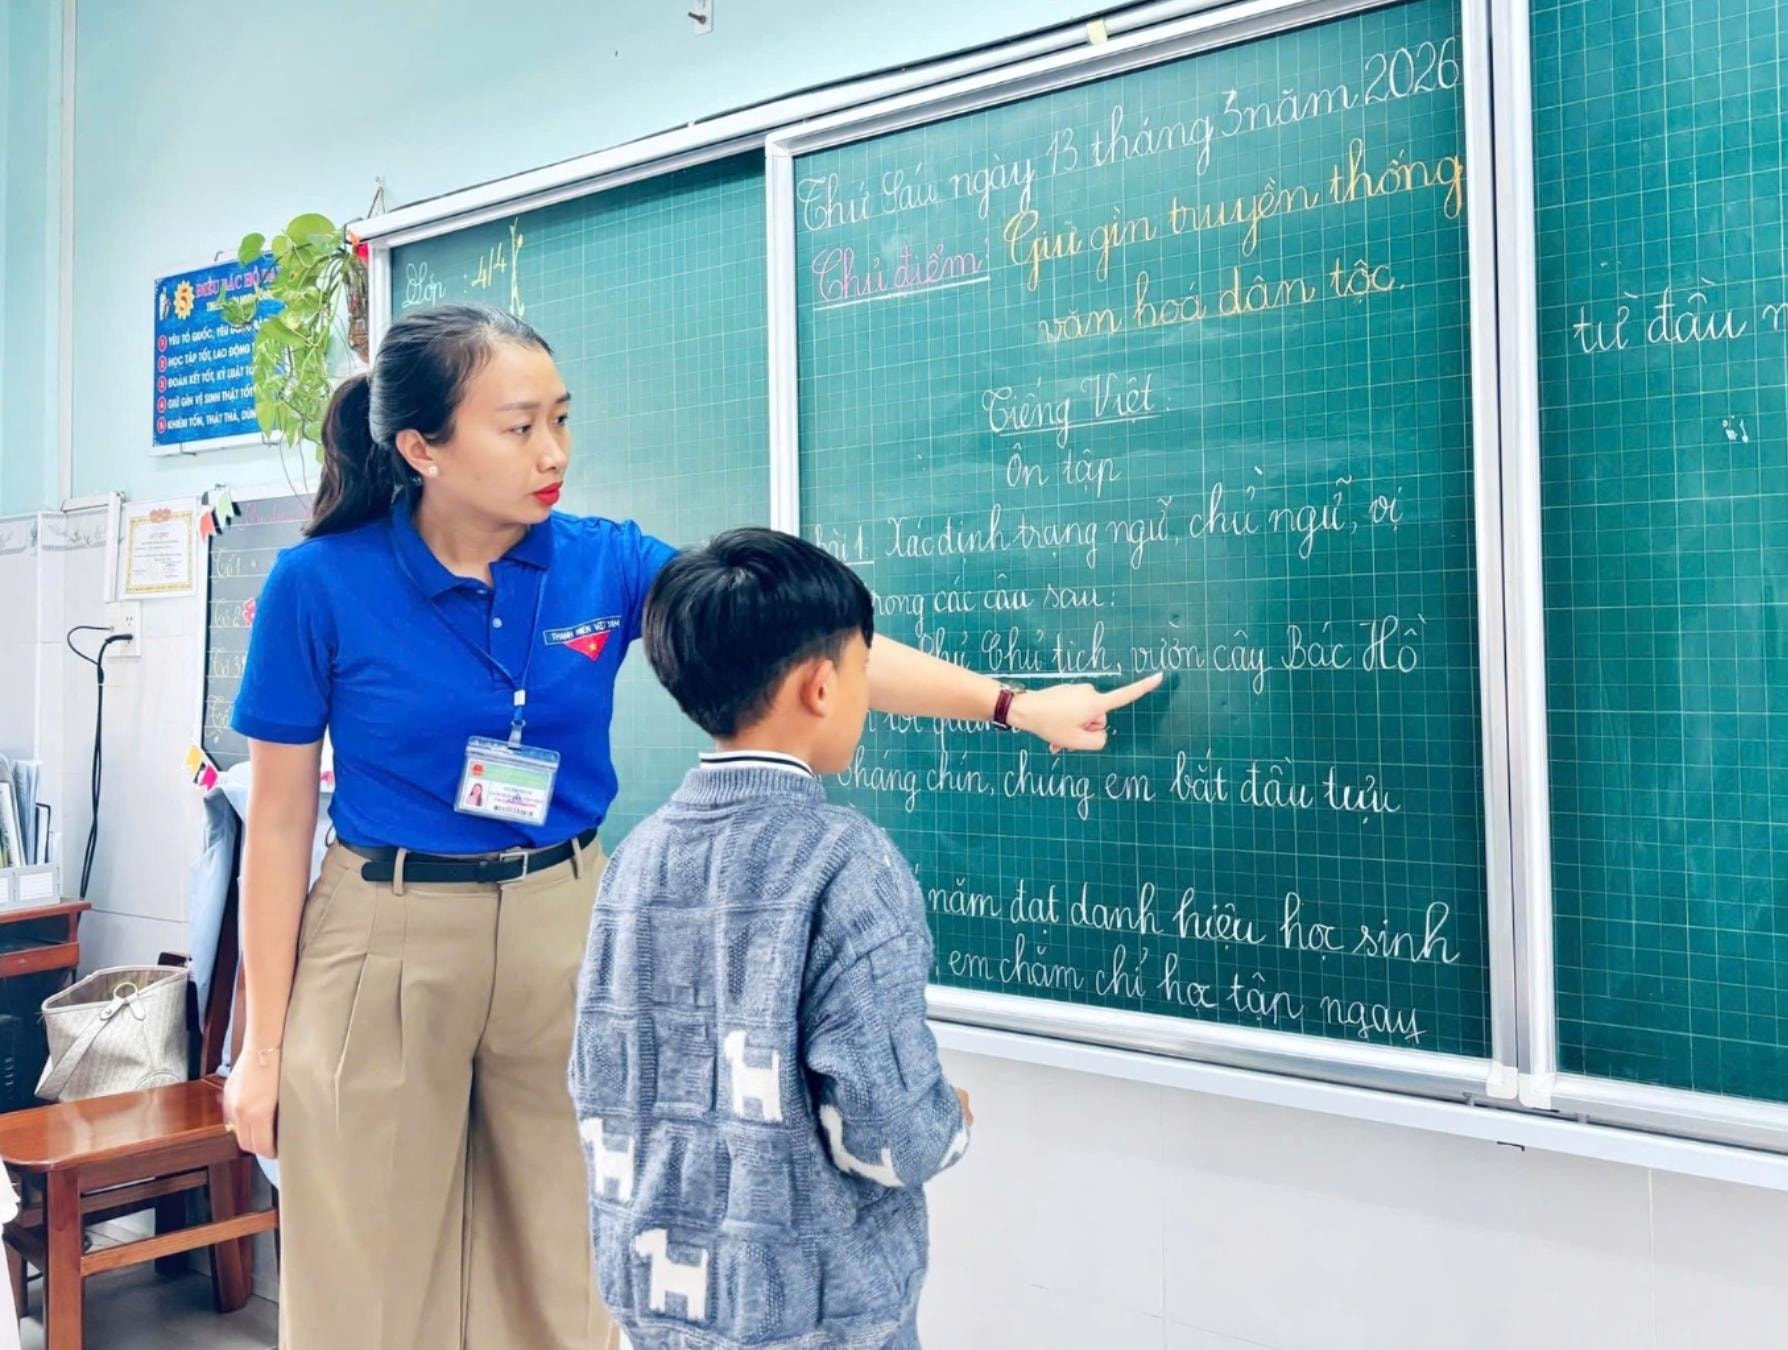 Thứ Sáu ngày 13 tháng 3 năm 2026
Chủ điểm: Giữ gìn truyền thống
văn hoá dân tộc.
Tiếng Việt:
Ôn tập
bài 1: Xác định trạng ngữ, chủ ngữ, vị
trong các câu sau:
Phủ Chủ tịch, vườn cây Bác Hồ
tháng chín, chúng em bắt đầu tựu
năm đạt danh hiệu học sinh
, em chăm chỉ học tập ngay
từ đầu
Lớp 4/4
5 ĐIỀU BÁC HỒ DẠY
1 YÊU TỔ QUỐC, YÊU ĐỒNG BÀO
2 HỌC TẬP TỐT, LAO ĐỘNG
3 ĐOÀN KẾT TỐT, KỶ LUẬT TỐT
4 GIỮ GÌN VỆ SINH THẬT TỐT
5 KHIÊM TỐN, THẬT THÀ, DŨNG
Tổ 1
Tổ 2
Tổ 3
THANH NIÊN VIỆT NAM